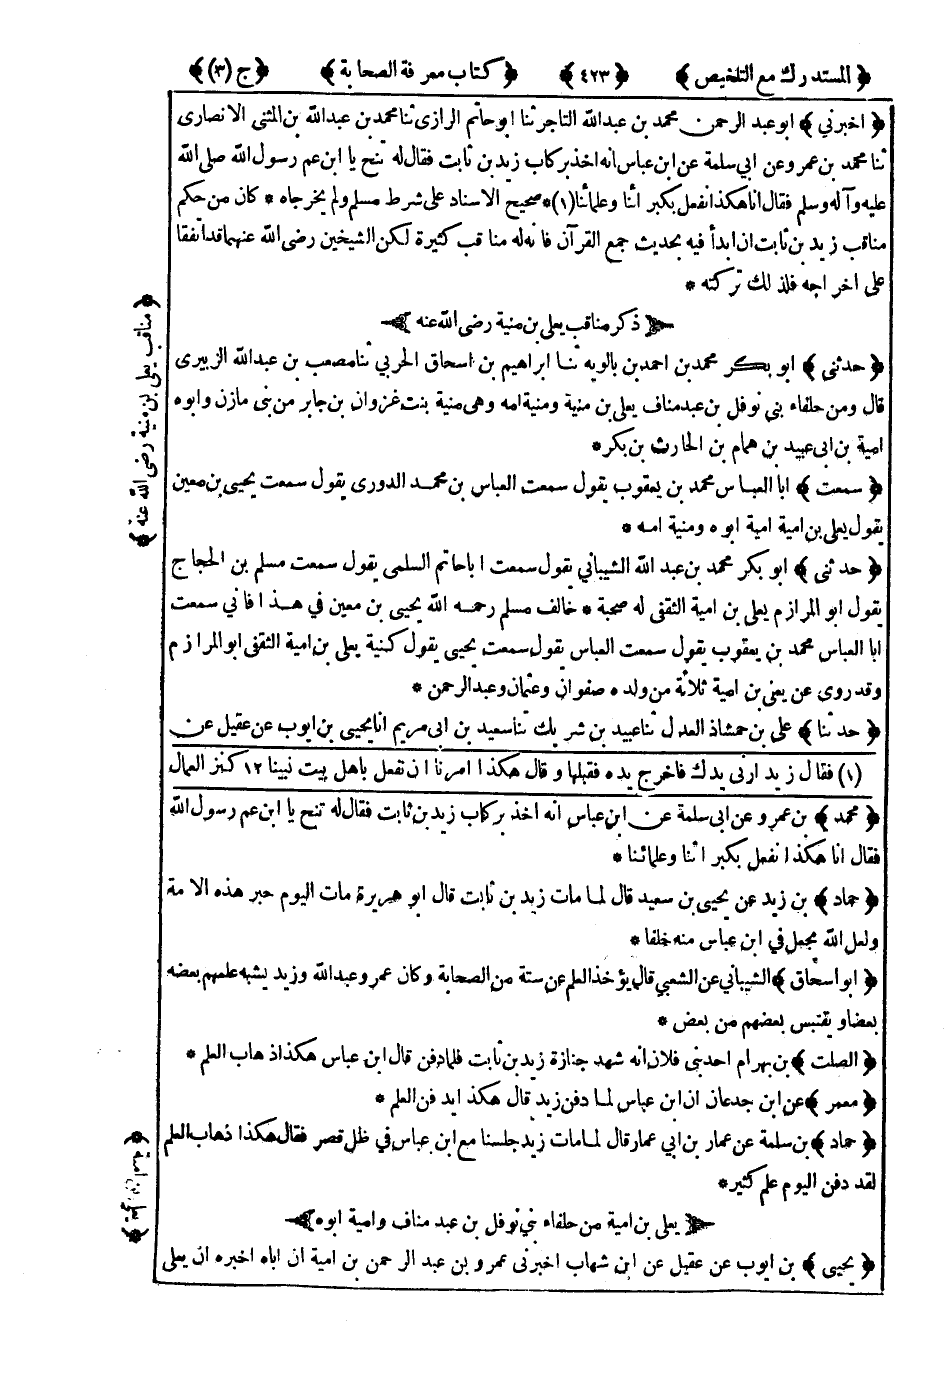 ﴿ المستدرك مع التلخيص ﴾ ﴿ ٤٢٣ ﴾ ﴿ كتاب معرفة الصحابة ﴾ ﴿ ج (٣) ﴾
﴿ اخبرني ﴾ ابو عبد الرحمن محمد بن عبدالله التاجر ثنا ابو حاتم الرازى ثنا محمد بن عبدالله بن المثنى الانصارى
ثنا محمد بن عمرو عن ابى سلمة عن ابن عباس انه اخذ بركاب زيد بن ثابت فقال له تنح يا ابن عم رسول الله صلى الله
عليه وآله وسلم فقال انا هكذا نفعل بكبرائنا وعلمائنا (١) * صحيح الاسناد على شرط مسلم ولم يخرجاه * كان من حكم
مناقب زيد بن ثابت ان ابدأ فيه بحديث جمع القرآن فانه له مناقب كثيرة لكن الشيخين رضى الله عنهما قد اتفقا
على اخراجه فلذلك تركته *
ذكر مناقب يعلى بن منية رضى الله عنه
﴿ حدثنى ﴾ ابو بكر محمد بن احمد بن بالويه ثنا ابراهيم بن اسحاق الحربي ثنا مصعب بن عبدالله الزبيرى
قال ومن حلفاء بني نوفل بن عبد مناف يعلى بن منية ومنية امه وهى منية بنت غزوان بن جابر من بنى مازن وابوه
امية بن ابى عبيد بن همام بن الحارث بن بكر *
﴿ سمعت ﴾ ابا العباس محمد بن يعقوب يقول سمعت العباس بن محمد الدورى يقول سمعت يحيى بن معين
يقول يعلى بن امية امية ابوه ومنية امه *
﴿ حدثنى ﴾ ابو بكر محمد بن عبد الله الشيباني يقول سمعت ابا حاتم السلمى يقول سمعت مسلم بن الحجاج
يقول ابو المرازم يعلى بن امية الثقفى له صحبة * خالف مسلم رحمه الله يحيى بن معين في هذا فاني سمعت
ابا العباس محمد بن يعقوب يقول سمعت العباس يقول سمعت يحيى يقول كنية يعلى بن امية الثقفى ابو المرازم
وقد روى عن يعلى بن امية ثلاثة من ولده صفوان وعثمان وعبدالرحمن *
﴿ حدثنا ﴾ على بن حمشاذ العدل ثنا عبيد بن شريك ثنا سعيد بن ابى مريم انا يحيى بن ايوب عن عقيل عن
(١) فقال زيد ارنى يدك فاخرج يده فقبلها وقال هكذا امرنا ان نفعل باهل بيت نبينا ١٢ كنز العمال
﴿ محمد ﴾ بن عمرو عن ابى سلمة عن ابن عباس انه اخذ بركاب زيد بن ثابت فقال له تنح يا ابن عم رسول الله
فقال انا هكذا نفعل بكبرائنا وعلمائنا *
﴿ حماد ﴾ بن زيد عن يحيى بن سعيد قال لما مات زيد بن ثابت قال ابو هريرة مات اليوم حبر هذه الامة
ولعل الله يجعل في ابن عباس منه خلفا *
﴿ ابو اسحاق ﴾ الشيباني عن الشعبي قال يؤخذ العلم عن ستة من الصحابة وكان عمر وعبدالله وزيد يشبه علمهم بعضه
بعضا ويقتبس بعضهم من بعض *
﴿ الصلت ﴾ بن بهرام احدثنى فلان انه شهد جنازة زيد بن ثابت فلما دفن قال ابن عباس هكذا ذهاب العلم *
﴿ معمر ﴾ عن ابن جدعان ان ابن عباس لما دفن زيد قال هكذا يدفن العلم *
﴿ حماد ﴾ بن سلمة عن عمار بن ابي عمار قال لما مات زيد جلسنا مع ابن عباس في ظل قصر فقال هكذا ذهاب العلم
لقد دفن اليوم علم كثير *
يعلى بن امية من حلفاء بني نوفل بن عبد مناف وامية ابوه
﴿ يحيى ﴾ بن ايوب عن عقيل عن ابن شهاب اخبرنى عمرو بن عبد الرحمن بن امية ان اباه اخبره ان يعلى
﴿ مناقب يعلى بن منية رضى الله عنه ﴾
﴿ يعلى بن امية ﴾